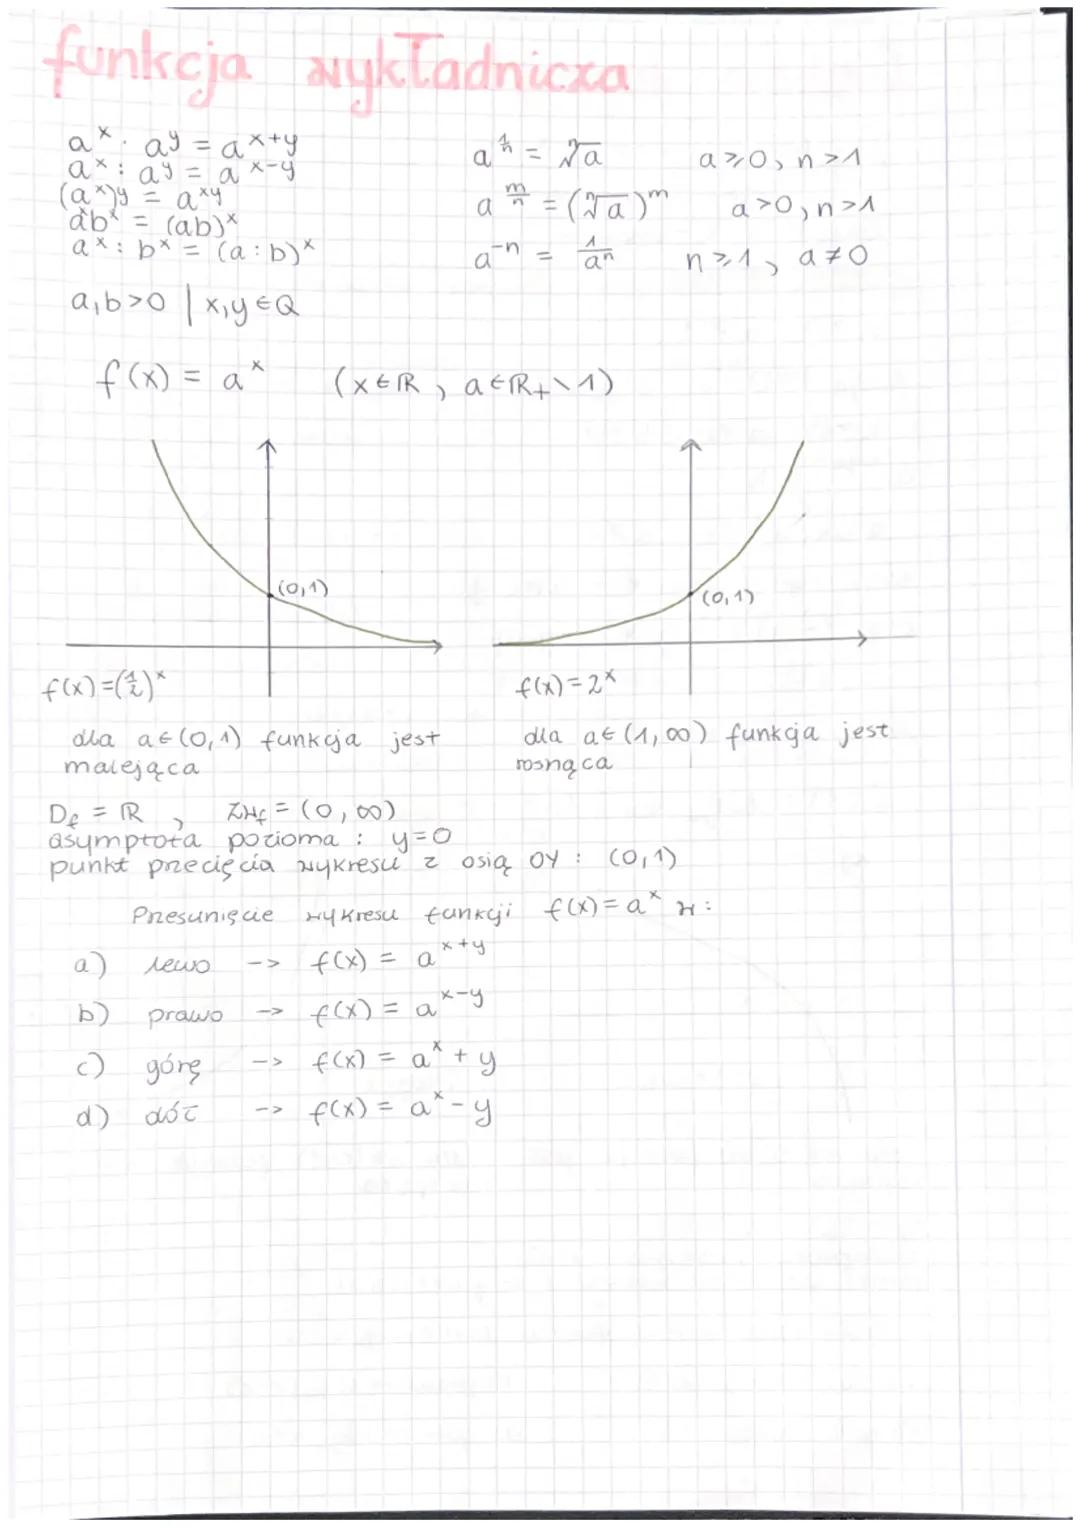 funkcja wykładnicza
aˣ · aʸ = aˣ⁺ʸ
aˣ : aʸ = aˣ⁻ʸ
(aˣ)ʸ = aˣʸ
aˣbˣ = (ab)ˣ
aˣ : bˣ = (a : b)ˣ
a,b>0 | x,y ∈ Q
a^(1/n) = ⁿ√a a⩾0, n>1
a^(m/n) = (ⁿ√a)ᵐ a>0, n>1
a⁻ⁿ = 1/aⁿ n⩾1, a≠0
f(x) = aˣ (x∈ℝ, a∈ℝ₊\1)
(0,1)
(0,1)
f(x)=(1/2)ˣ
dla a∈(0,1) funkcja jest
malejąca
f(x)=2ˣ
dla a∈(1,∞) funkcja jest
rosnąca
D_f = ℝ, ZW_f = (0,∞)
asymptota pozioma : y=0
punkt przecięcia wykresu z osią OY : (0,1)
Przesunięcie wykresu funkcji f(x)=aˣ w:
a) lewo --> f(x) = aˣ⁺ʸ
b) prawo --> f(x) = aˣ⁻ʸ
c) górę --> f(x) = aˣ + y
d) dół --> f(x) = aˣ - y